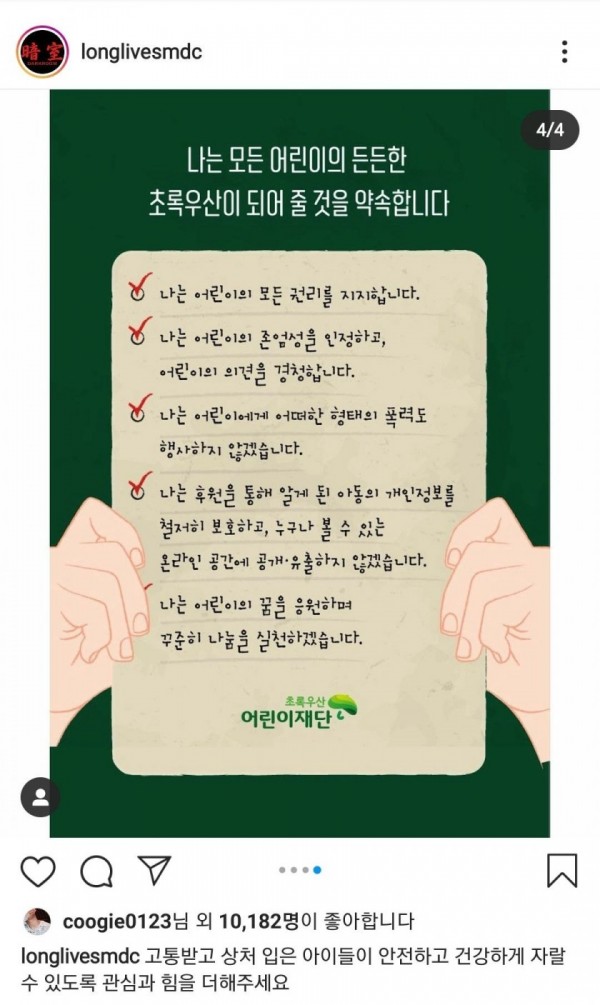 暗室
longlivesmdc
4/4
나는 모든 어린이의 든든한
초록우산이 되어 줄 것을 약속합니다
나는 어린이의 모든 권리를 지지합니다.
나는 어린이의 존엄성을 인정하고,
어린이의 의견을 경청합니다.
나는 어린이에게 어떠한 형태의 폭력도
행사하지 않겠습니다.
나는 후원을 통해 알게 된 아동의 개인정보를
철저히 보호하고, 누구나 볼 수 있는
온라인 공간에 공개·유출하지 않겠습니다.
나는 어린이의 꿈을 응원하며
꾸준히 나눔을 실천하겠습니다.
초록우산
어린이재단
coogie0123님 외 10,182명이 좋아합니다
longlivesmdc 고통받고 상처 입은 아이들이 안전하고 건강하게 자랄
수 있도록 관심과 힘을 더해주세요